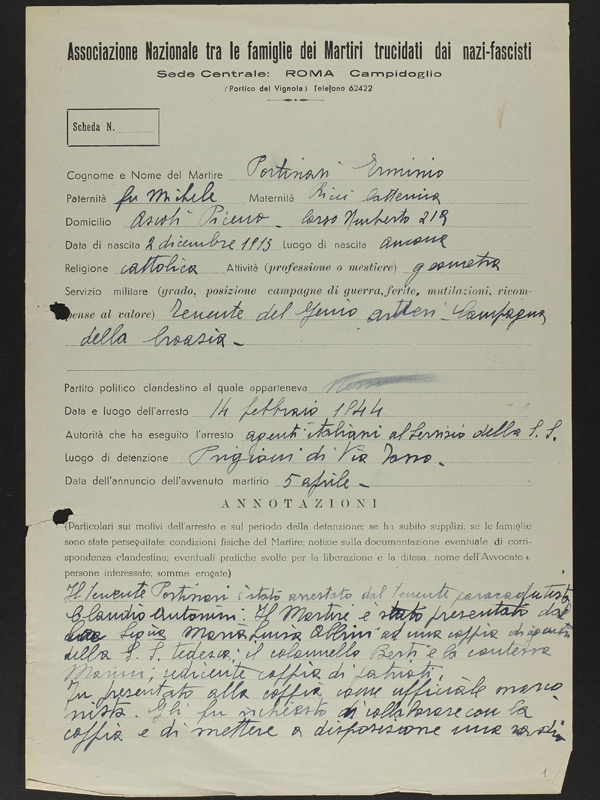 Associazione Nazionale tra le famiglie dei Martiri trucidati dai nazi-fascisti
Sede Centrale: ROMA Campidoglio
(Portico del Vignola) Telefono 62422
Scheda N.
Cognome e Nome del Martire Portinari Erminio
Paternità fu Michele Maternità Ricci Catterina
Domicilio Ascoli Piceno - Corso Umberto 219
Data di nascita 2 dicembre 1913 Luogo di nascita Ancona
Religione cattolica Attività (professione o mestiere) geometra
Servizio militare (grado, posizione campagne di guerra, ferite, mutilazioni, ricom-
pense al valore) Tenente del Genio - Campagna
della Croazia -
Partito politico clandestino al quale apparteneva
Data e luogo dell'arresto 14 febbraio 1944
Autorità che ha eseguito l'arresto agenti italiani al servizio della S. S.
Luogo di detenzione Prigioni di Via Tasso -
Data dell'annuncio dell'avvenuto martirio 5 aprile -
ANNOTAZIONI
(Particolari sui motivi dell'arresto e sul periodo della detenzione; se ha subito supplizi; se le famiglie
sono state perseguitate; condizioni fisiche del Martire; notizie sulla documentazione eventuale di corri-
spondenza clandestina; eventuali pratiche svolte per la liberazione e la difesa, nome dell'Avvocato e
persone interessate; somme erogate)
Il tenente Portinari è stato arrestato dal tenente paracadutista
Claudio Antonini. Il Martire è stato presentato
Maria Luisa ad una coppia di agenti
della S. S. tedesca; il colonnello Berti e la contessa
Marini; sedicente coppia di patrioti.
Fu presentato alla coppia come ufficiale marco
nista. Gli fu richiesto di collaborare con la
coppia e di mettere a disposizione una radio
1